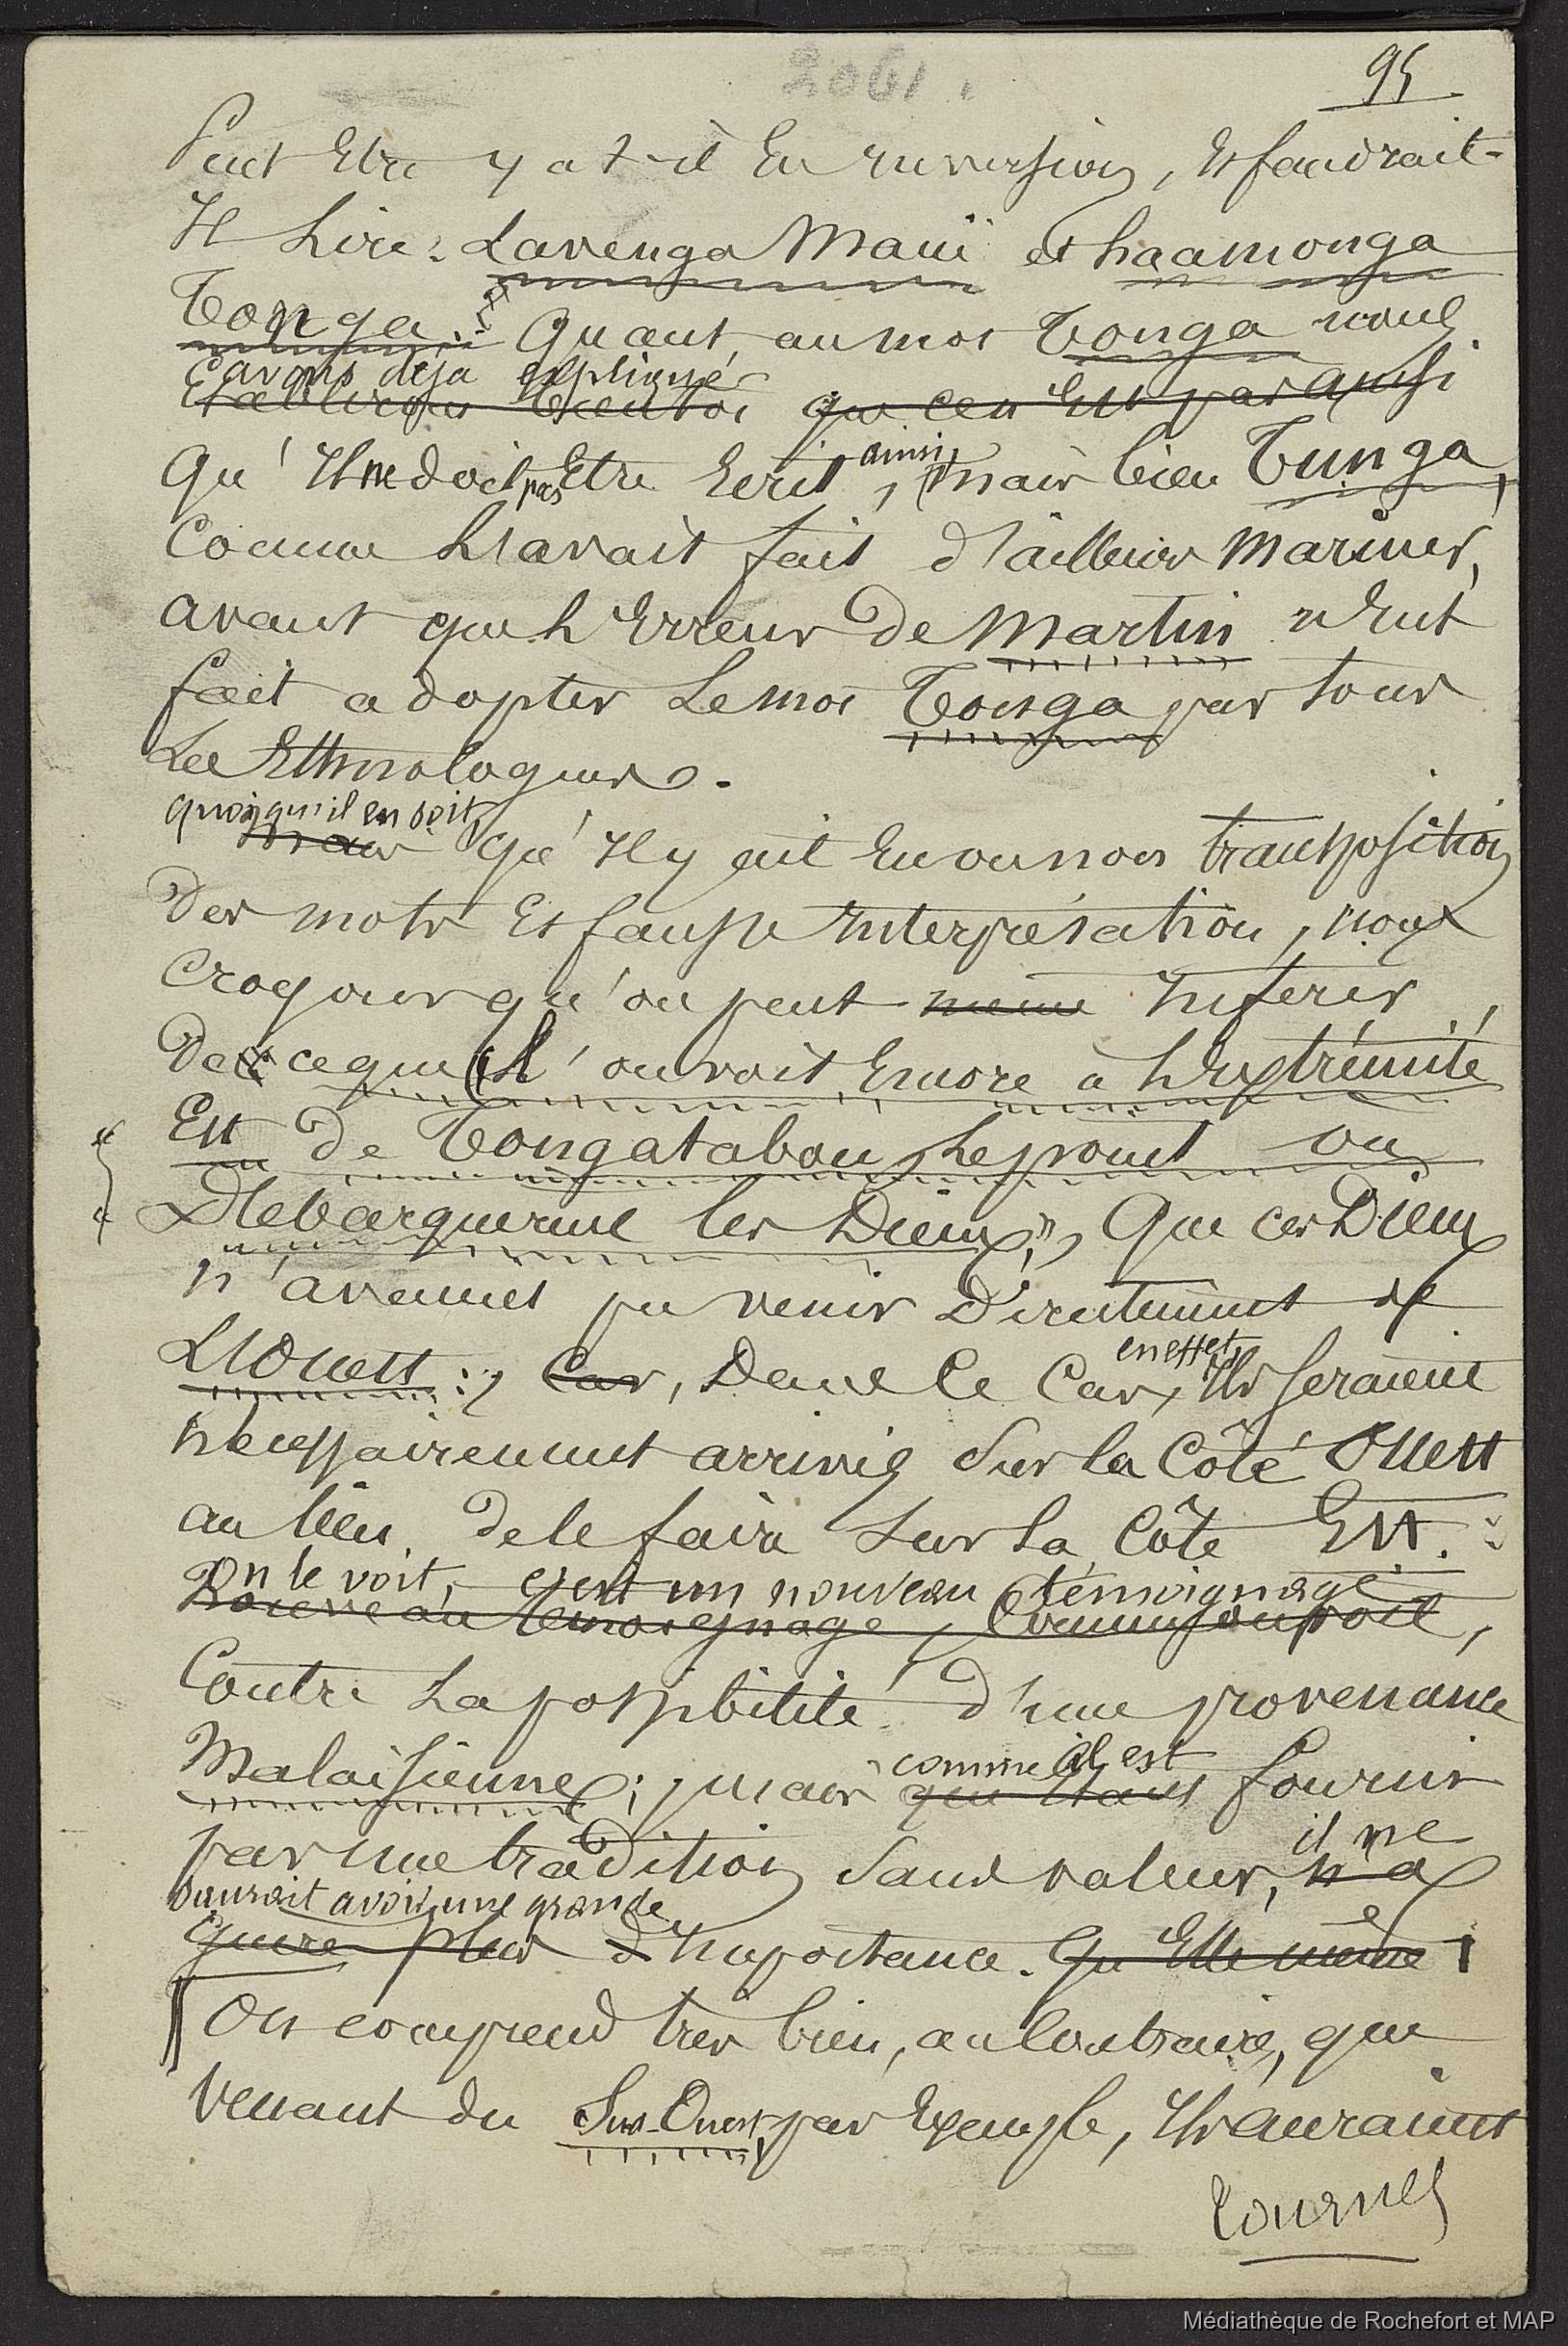 2061.
95
Peut Etre y a t-il Eu inversion, Et faudrait-
Il Lire: Lavenga Mauï et haamonga
Tonga. Quant au mot Tonga nous
avons deja expliqué
Etablirons bientot que ce n'est pas ainsi
Qu'Il ne doit pas Etre Ecrit ainsi, mais bien Tunga,
Comme L'avait fait d'ailleurs Mariner,
avant que L'Erreur de Martin n'Eut
fait adopter Le mot Tonga par tous
Les Ethnologues.
quoiqu'il en soit,
mais qu'Il y ait Eu ou non transposition
Des mots Et fausse Interprétation, nous
Croyons qu'on peut même Inférer,
De ce que L'on voit Encore à L'Extrémité
« Est de Tongatabou, Le point ou
Débarquèrent les Dieux », Que ces Dieux
n'avaient pu venir Directement de
L'Ouest: Car, Dans ce Cas, en effet, Ils seraient
nécessairement arrivés Sur la Côté Ouest
au lieu de le faire Sur la Côte Est.
On le voit, c'est un nouveau témoignage
Nouveau témoignage, Comme on voit,
Contre La possibilité d'une provenance
Malaisienne; mais comme il est
qu'étant fourni
par une tradition Sans valeur, il ne
n'a
saurait avoir une grande
guère plus d'Importance. qu'Elle même
On comprend très bien, au Contraire, que
Venant du Sud-Ouest, par Exemple, Ils auraient
tournés
Médiathèque de Rochefort et MAP